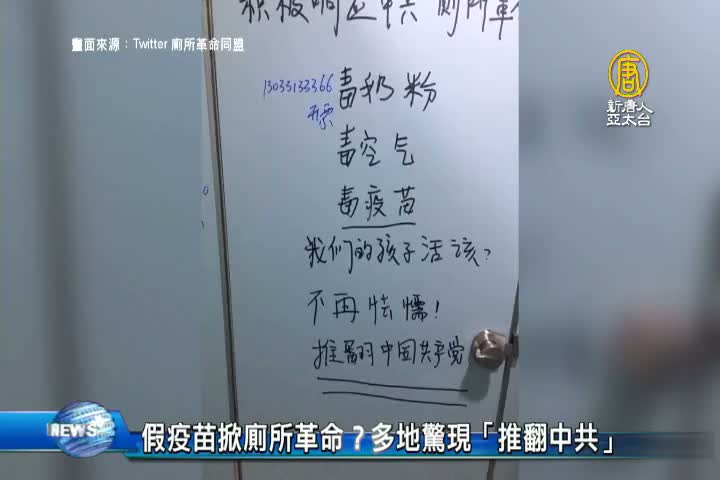 积极响应中共厕所革
畫面來源：Twitter 廁所革命同盟
唐
新唐人
亞太台
13035133366
开票
毒奶粉
毒空气
毒疫苗
我们的孩子活该？
不再怯懦！
推翻中国共产党
NEWS
假疫苗掀廁所革命？多地驚現「推翻中共」